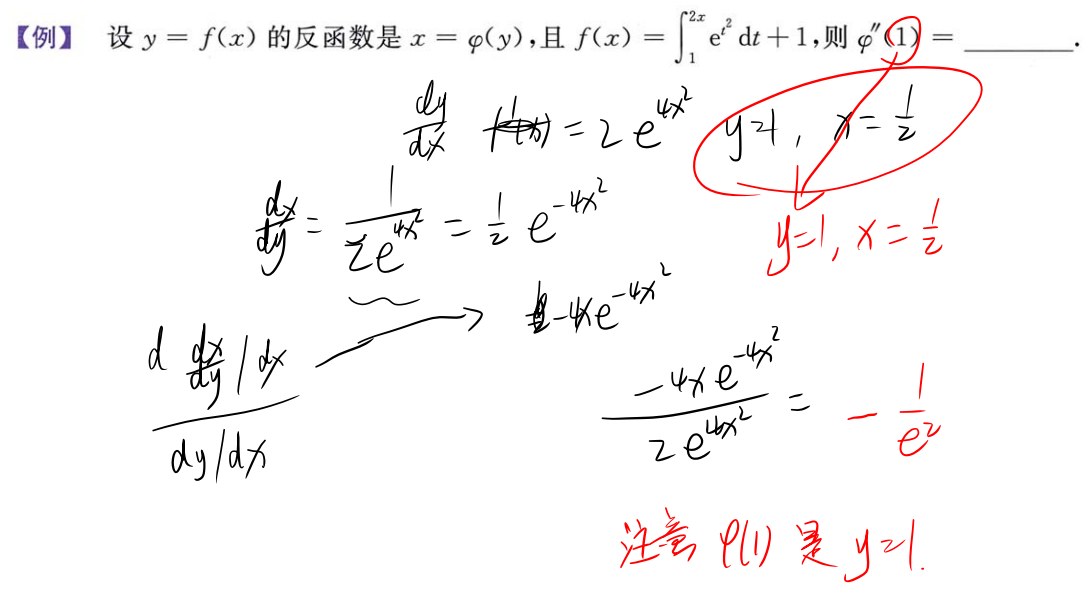 【例】 设 y = f(x) 的反函数是 x = φ(y),且 f(x) = ∫₁²ˣ e^{t²} dt + 1,则 φ″(1) = ________.
dy/dx = 2e^{4x²} y=1, x=1/2
dx/dy = 1/(2e^{4x²}) = 1/2 e^{-4x²}
y=1, x=1/2
-4xe^{-4x²}
(d dx/dy / dx)/(dy/dx)
(-4xe^{-4x²})/(2e^{4x²}) = -1/e²
注意 φ(1) 是 y=1.